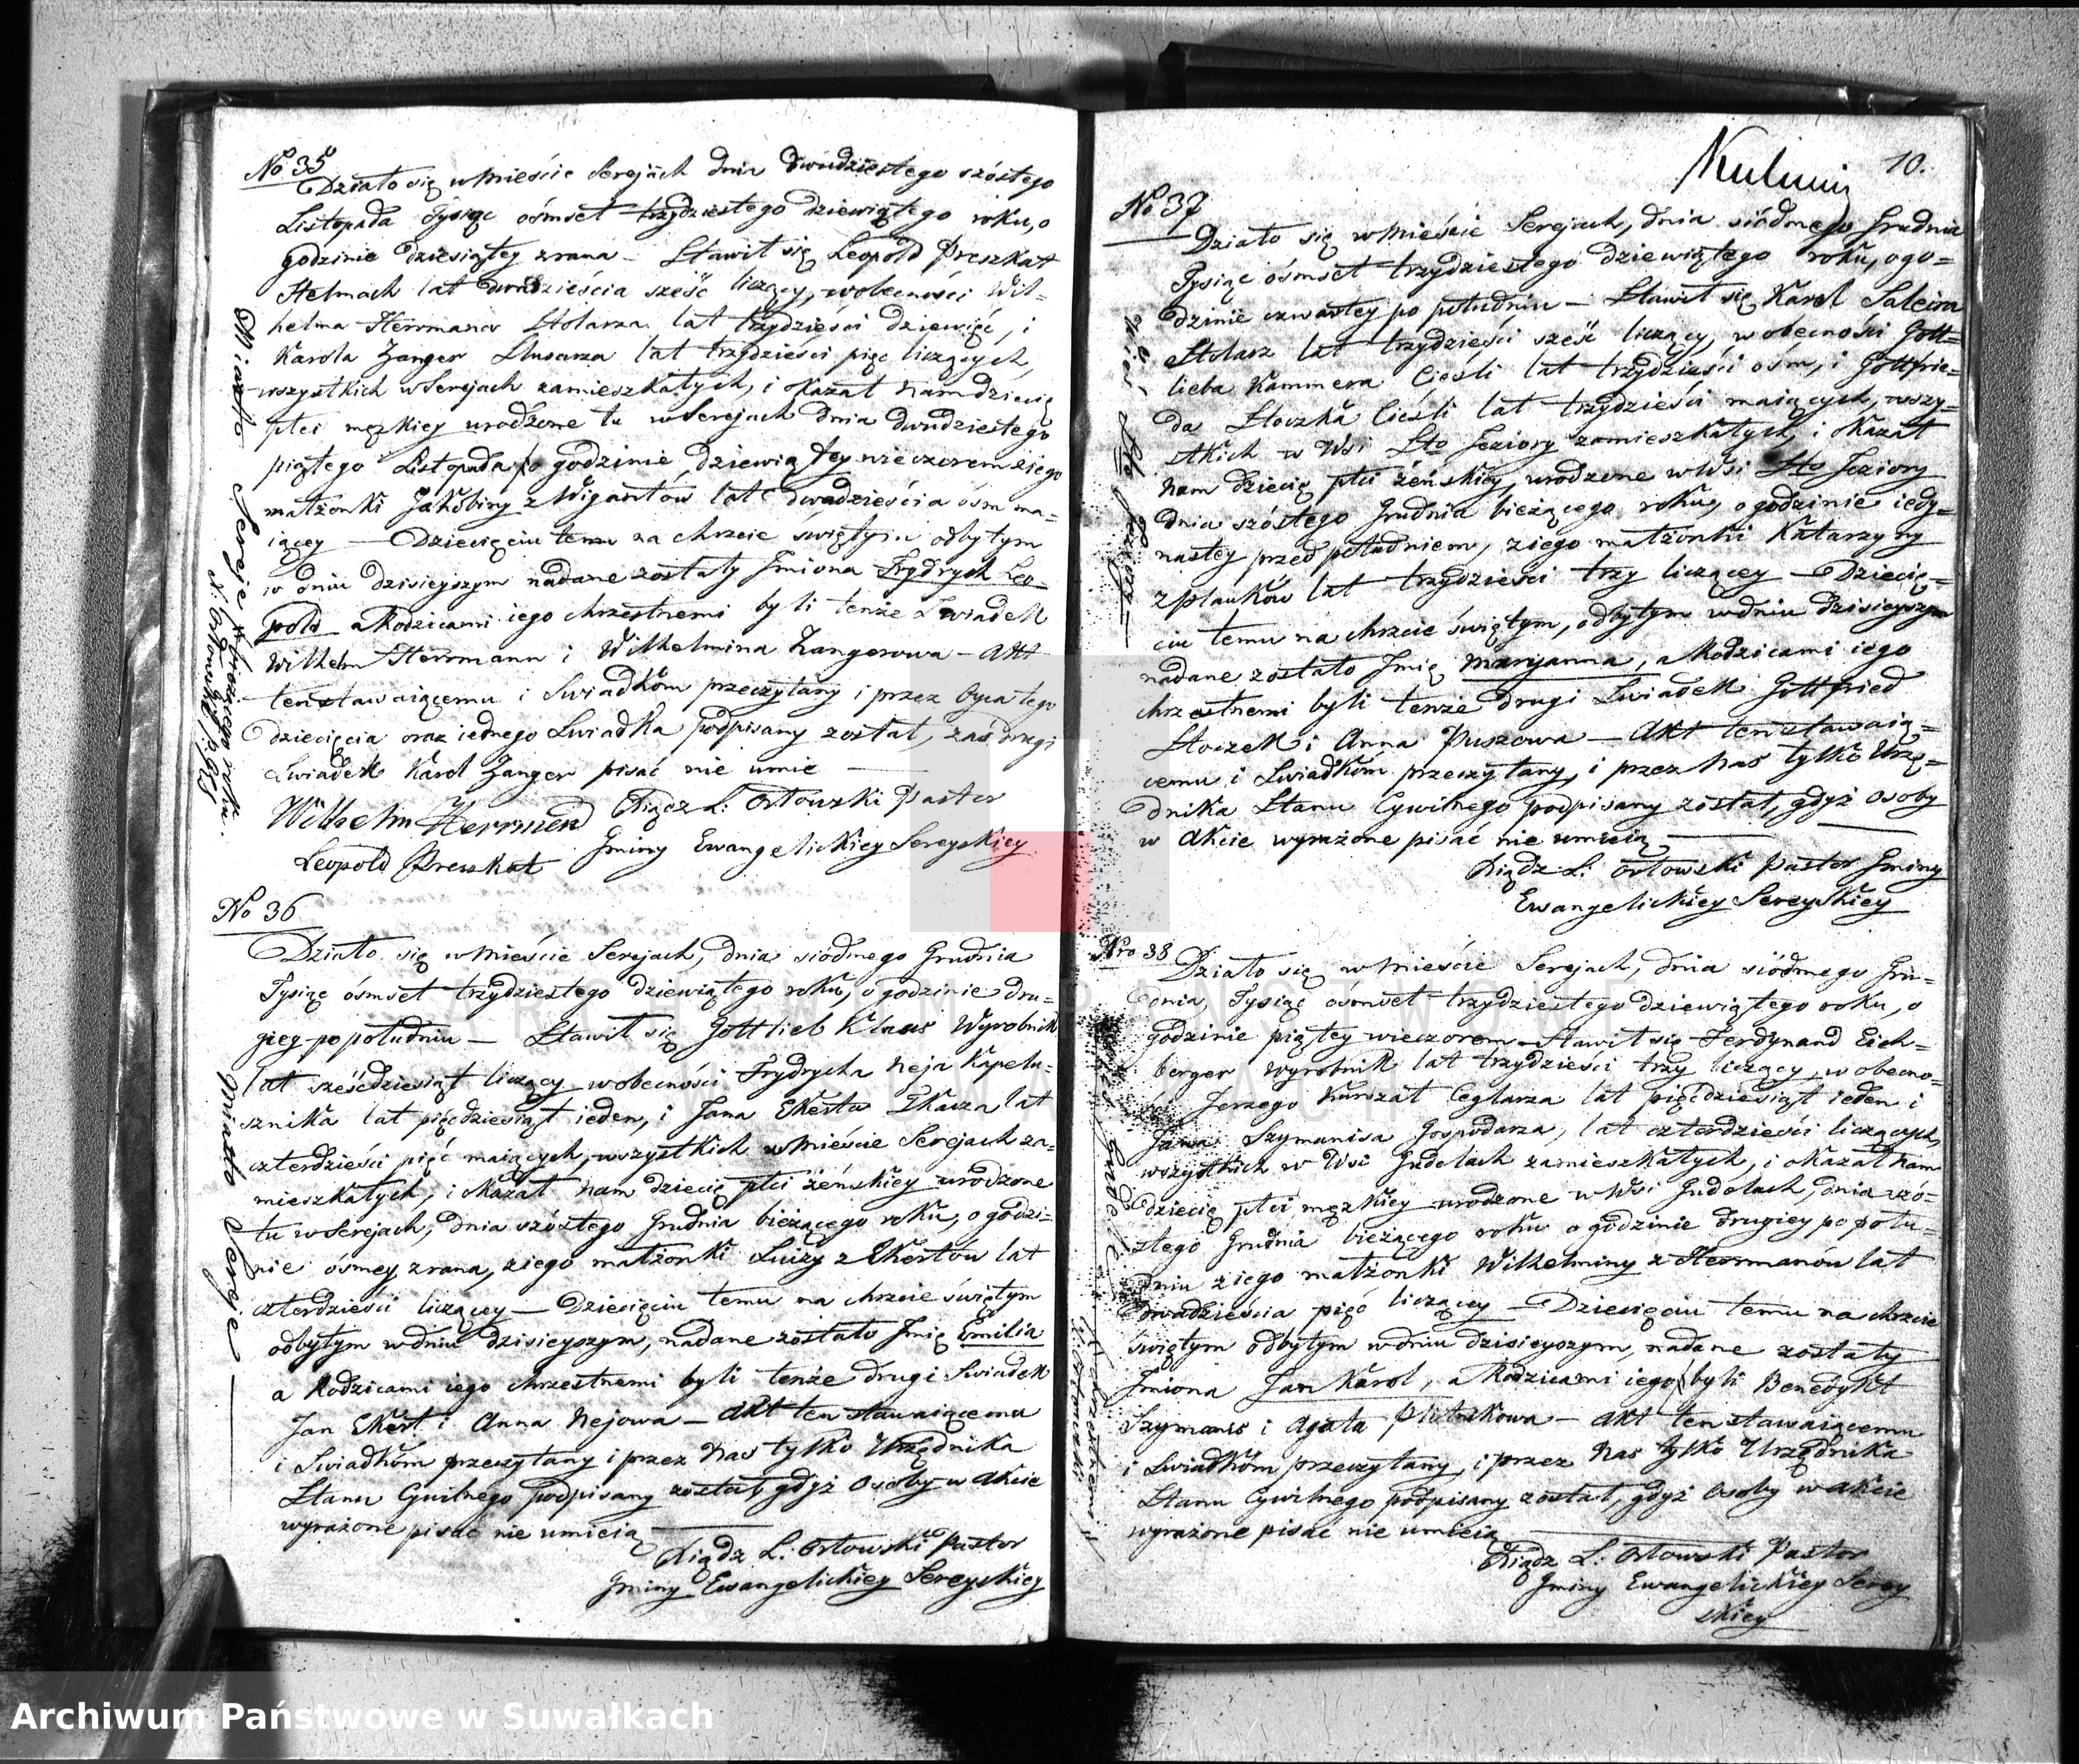 No 35
Działo się w Mieście Serejach dnia dwudziestego szóstego
Listopada Tysiąc ośmset trzydziestego dziewiątego roku, o
godzinie dziesiątey zrana – Stawił się Leopold Preszkat
Stelmach lat dwadzieścia sześć liczący, w obecności Wil=
helma Herrmana Stolarza lat trzydzieści dziewięć, i
Karola Zanger Slusarza lat trzydzieści pięc liczących,
wszystkich w Serejach zamieszkałych, i okazał nam dziecię
płci męzkiey urodzone tu w Serejach dnia dwudziestego
piątego Listopada o godzinie dziewiątey wieczorem z iego
małżonki Jakóbiny z Wigantów lat dwadzieścia ośm ma=
iącey — Dziecięciu temu na chrzcie świętym odbytym
w dniu dzisieyszym nadane zostały Jmiona Frydrych Leo=
pold a Rodzicami iego chrzestnemi byli tenże Swiadek
Wilhelm Herrmann i Wilhelmina Zangerowa – Akt
ten stawaiącemu i Swiadkóm przeczytany i przez Oyca tego
dziecięcia oraz iednego Swiadka podpisany został, zaś drugi
Swiadek Karol Zanger pisać nie umie —
Wilhelm Herrmen Xiądz L. Orłowski Pastor
Gminy Ewangelickiey Sereyskiey
Leopold Preuskat
Miasto Sereje
* bieżącego roku.
X. L. Orłowski P.G.E.S
No 36
Działo się w Mieście Serejach, dnia siódmego Grudnia
Tysiąc ośmset trzydziestego dziewiątego roku, o godzinie dru=
giey po południu — Stawił się Gottlieb Klaus Wyrobnik
lat sześćdziesiąt liczący w obecności Frydrycha Neja Kapelu=
sznika lat pięćdziesiąt ieden, i Jana Ekerta Tkacza lat
czterdzieści pięć maiących, wszystkich w Mieście Serejach za=
mieszkałych, i okazał nam dziecię płci żeńskiey urodzone
tu w Serejach, dnia szóstego Grudnia bieżącego roku, o godzi=
nie ósmey zrana, z iego małżonki Luizy z Ekertów lat
czterdzieści liczącey — Dziecięciu temu na chrzcie świętym
odbytym w dniu dzisieyszym, nadane zostało Jmię Emilia
a Rodzicami iego chrzestnemi byli tenże drugi Swiadek
Jan Ekert i Anna Nejowa — Akt ten stawaiącemu
i Swiadkóm przeczytany i przez Nas tylko Urzędnika
Stanu Cywilnego podpisany został, gdyż Osoby w Akcie
wyrażone pisać nie umieią —
Xiądz L. Orłowski Pastor
Gminy Ewangelickiey Sereyskiey
Miasto Sereje
10.
No 37
Działo się w Mieście Serejach, dnia siódmego Grudnia
Tysiąc ośmset trzydziestego dziewiątego roku, o go=
dzinie czwartey po południu — Stawił się Karol
Stolarz lat trzydzieści sześć liczący, w obecności Gott=
lieba Kammera Cieśli lat trzydzieści ośm, i Gottfrie=
da Stoczka Cieśli lat trzydzieści maiących, wszy=
stkich w Wsi Sto Jeziory zamieszkałych, i okazał
nam dziecię płci żeńskiey, urodzone w Wsi Sto Jeziory
dnia szóstego Grudnia bieżącego roku, o godzinie iedy=
nastey przed południem, z iego małżonki Katarzyny
z Plauków lat trzydzieści trzy liczącey — Dziecię=
ciu temu na chrzcie świętym, odbytym w dniu dzisieyszym
nadane zostało Jmię Maryanna, a Rodzicami iego
chrzestnemi byli tenże drugi Swiadek Gottfried
Stoczek i Anna Puszowa — Akt ten stawaią=
cemu i Swiadkóm przeczytany, i przez Nas tylko Urzę=
dnika Stanu Cywilnego podpisany został, gdyż Osoby
w Akcie wyrażone pisać nie umieią —
Xiądz L. Orłowski Pastor Gminy
Ewangelickiey Sereyskiey
Wieś Sto Jeziory
Nro 38
Działo się w Mieście Serejach, dnia siódmego Gru=
dnia, Tysiąc ośmset trzydziestego dziewiątego roku, o
godzinie piątey wieczorem – Stawił się Ferdynand Eich=
berger Wyrobnik lat trzydzieści trzy liczący, w obecno=
ści Jerzego Kurszat Ceglarza lat pięćdziesiąt ieden i
Jana Szymanisa Gospodarza, lat czterdzieści liczących,
wszystkich w Wsi Gudelach zamieszkałych, i okazał nam
dziecię płci męzkiey urodzone w Wsi Gudelach, dnia szó=
stego Grudnia bieżącego roku o godzinie drugiey po połu=
dniu z iego małżonki Wilhelminy z Herrmanów lat
dwadzieścia pięć liczącey — Dziecięciu temu na chrzcie
świętym odbytym w dniu dzisieyszym, nadane zostały
Jmiona Jan Karol, a Rodzicami iego byli Benedykt
Szymanis i Agata — Akt ten stawaiącemu
i Swiadkóm przeczytany, i przez Nas tylko Urzędnika
Stanu Cywilnego podpisany został, gdyż Osoby w Akcie
wyrażone pisać nie umieią —
Xiądz L. Orłowski Pastor
Gminy Ewangelickiey Serey
skiey
ARCHIWUM PAŃSTWOWE
W SUWAŁKACH
Archiwum Państwowe w Suwałkach